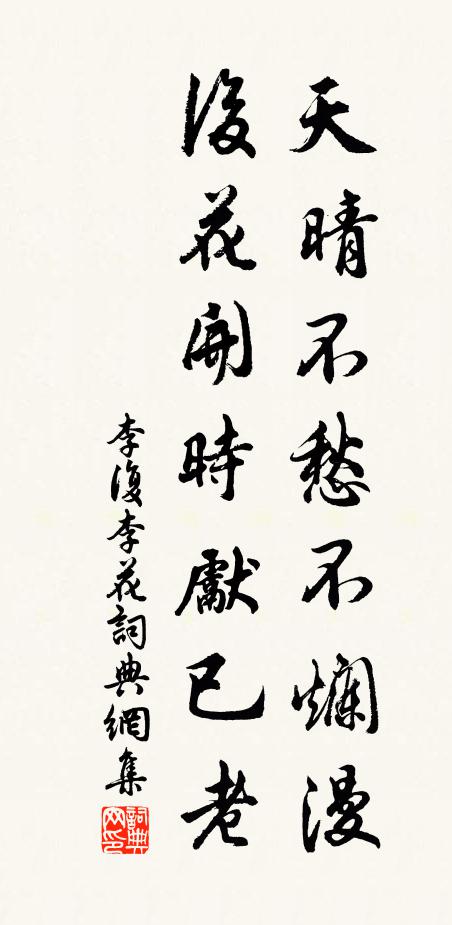 天晴不愁不爛漫
後花開時獻已老
李復李花詞典網集
詞典網印